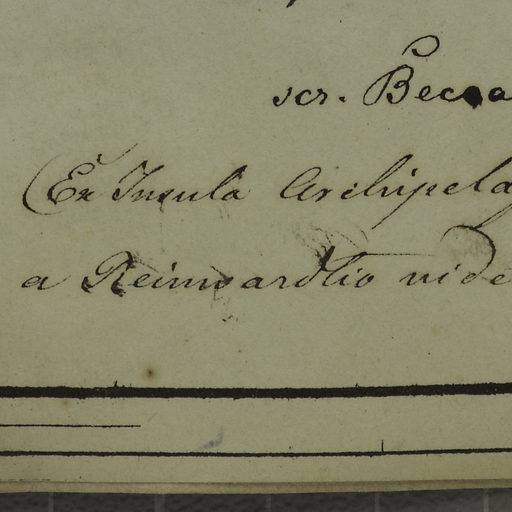 scr. Becca
(Ex Insula Archipela
a Reinwardtio vide